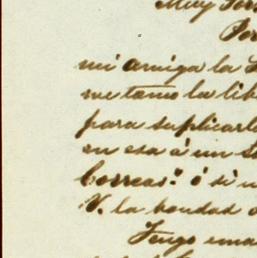 Muy
Por
mi amiga la
me tomo la lib
para suplicarle
en esa á un
Correas." ó si
V. la bondad
Tengo una